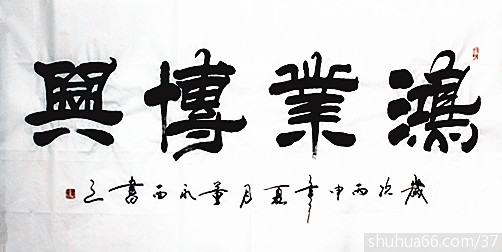 鴻業博興
歲次丙申年夏月董永西書之
shuhua66.com/37